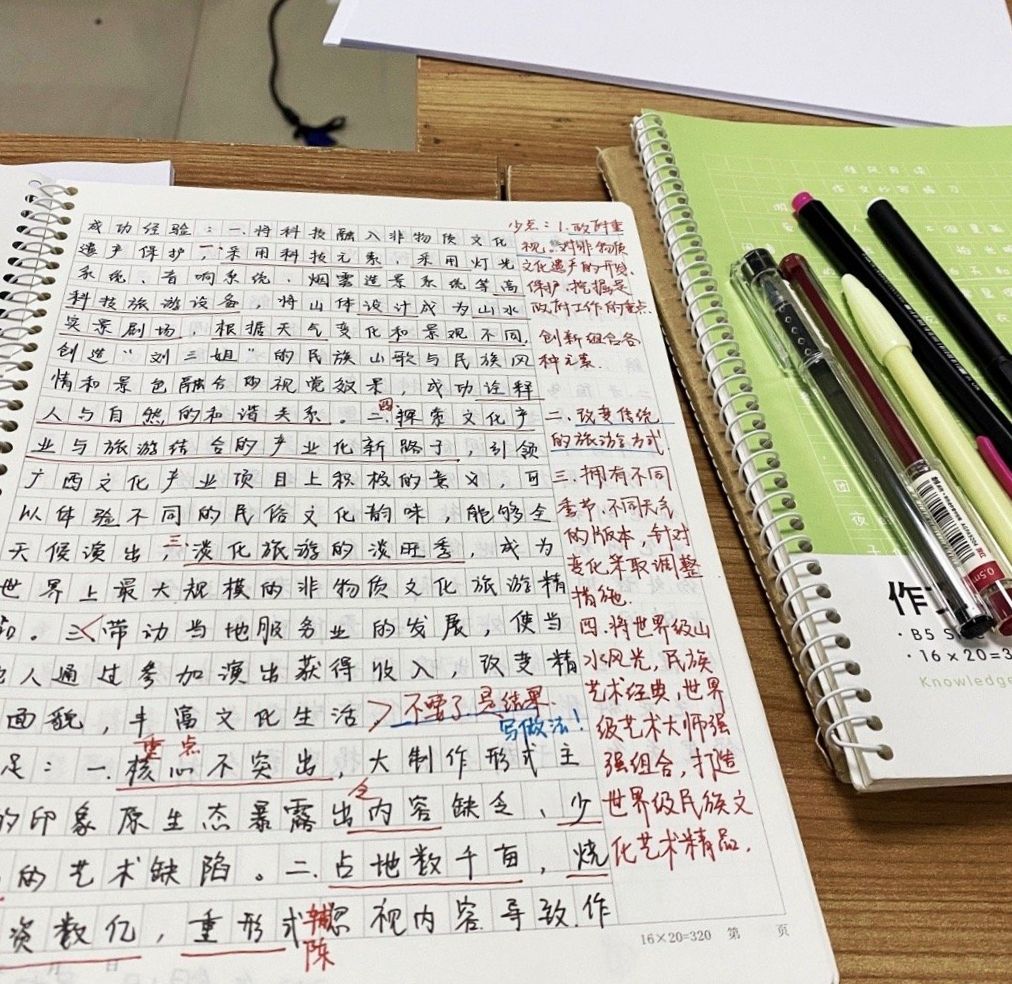 成功经验：一.将科技融入非物质文化
遗产保护，一.采用科技元素，采用灯光
系统、音响系统、烟雾造景系统等高
科技旅游设备，将山体设计成为山水
实景剧场，根据天气变化和景观不同,
创造“刘三姐”的民族山歌与民族风
情和景色融合的视觉效果，成功诠释
人与自然的和谐关系。二.四.探索文化产
业与旅游结合的产业化新路子，引领
广西文化产业项目上积极的意义，可
以体验不同的民俗文化韵味，能够全
天候演出，三.淡化旅游的淡旺季，成为
世界上最大规模的非物质文化旅游精
品。三.带动当地服务业的发展，使当
地人通过参加演出获得收入，改变精
面貌，丰富文化生活，不要了是结果.
写做法!
重点
足：一.核心不突出，大制作形式主
的印象原生态暴露出内容缺乏、少
的艺术缺陷。二.占地数千亩，烧
资数亿，重形式轻忽视内容导致作
陈
月 日
16×20=320 第 页
少点：1.政府重
视.对非物质
文化遗产的开发、
保护、挖掘是
政府工作的重点.
创新组合各
种元素.
二.改变传统
的旅游方式
三.拥有不同
季节、不同天气
的版本，针对
变化采取调整
措施.
四.将世界级山
水风光，民族
艺术经典，世界
级艺术大师强
强组合，打造
世界级民族文
化艺术精品.
作文
·B5
·16×20=3
Knowledge
0.5m